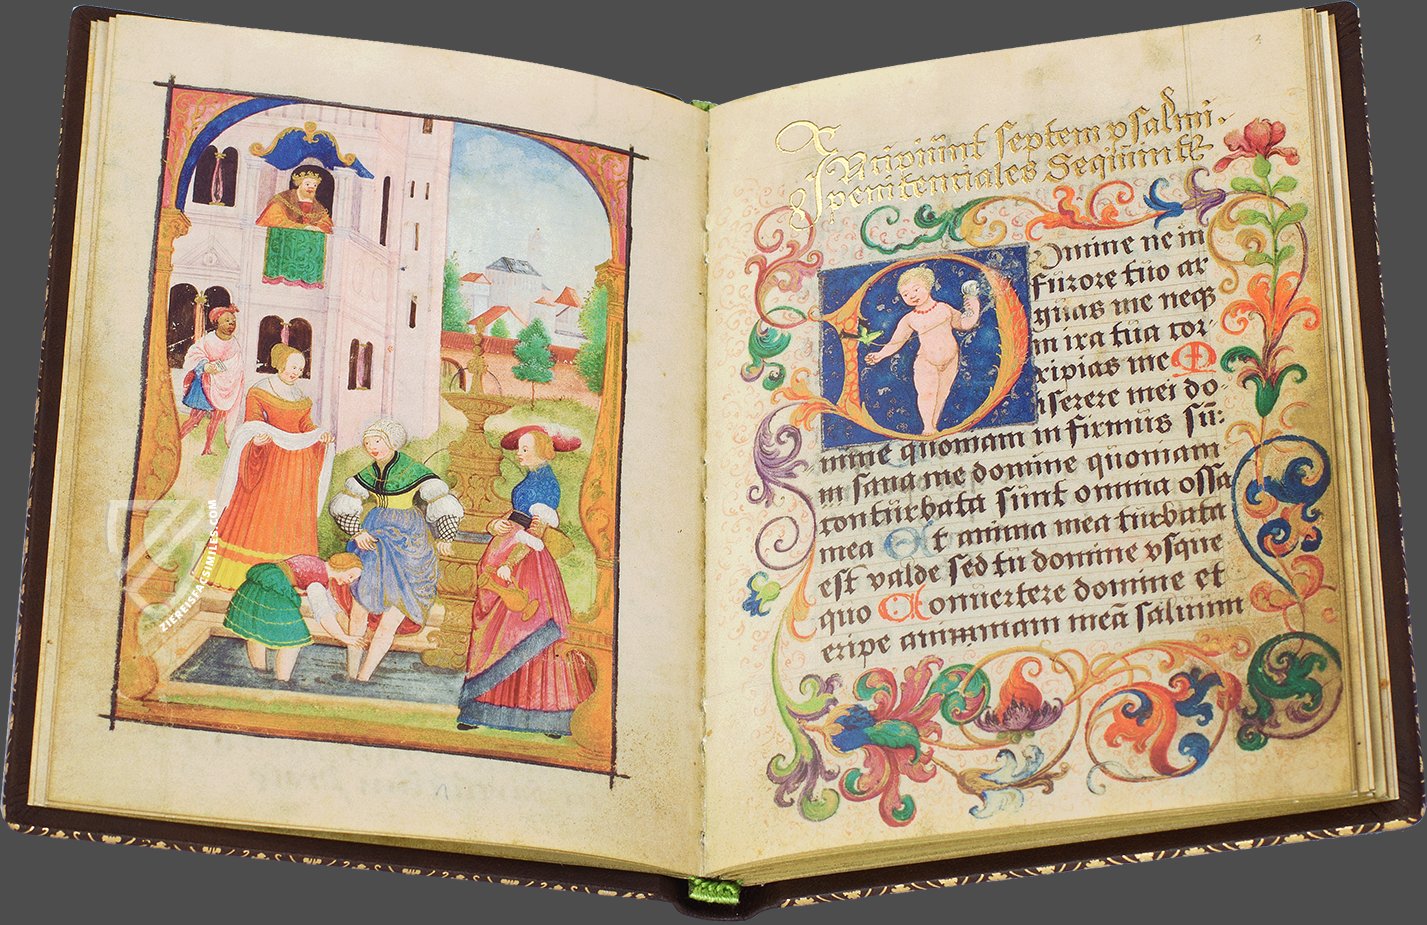 ZIEREISFACSIMILES.COM
Incipiũnt septem psalmi.
penitenciales Sequũnt̃
Domine ne in
furore tuo ar
guas me neqꝫ
in ira tua cor
ripias me M
iserere mei do
mine quoniam infirmus sũ:
sana me domine quoniam
conturbata sunt omnia ossa
mea Et anima mea turbata
est valde sed tu domine vsque
quo Conuertere domine et
eripe animmam meã saluum